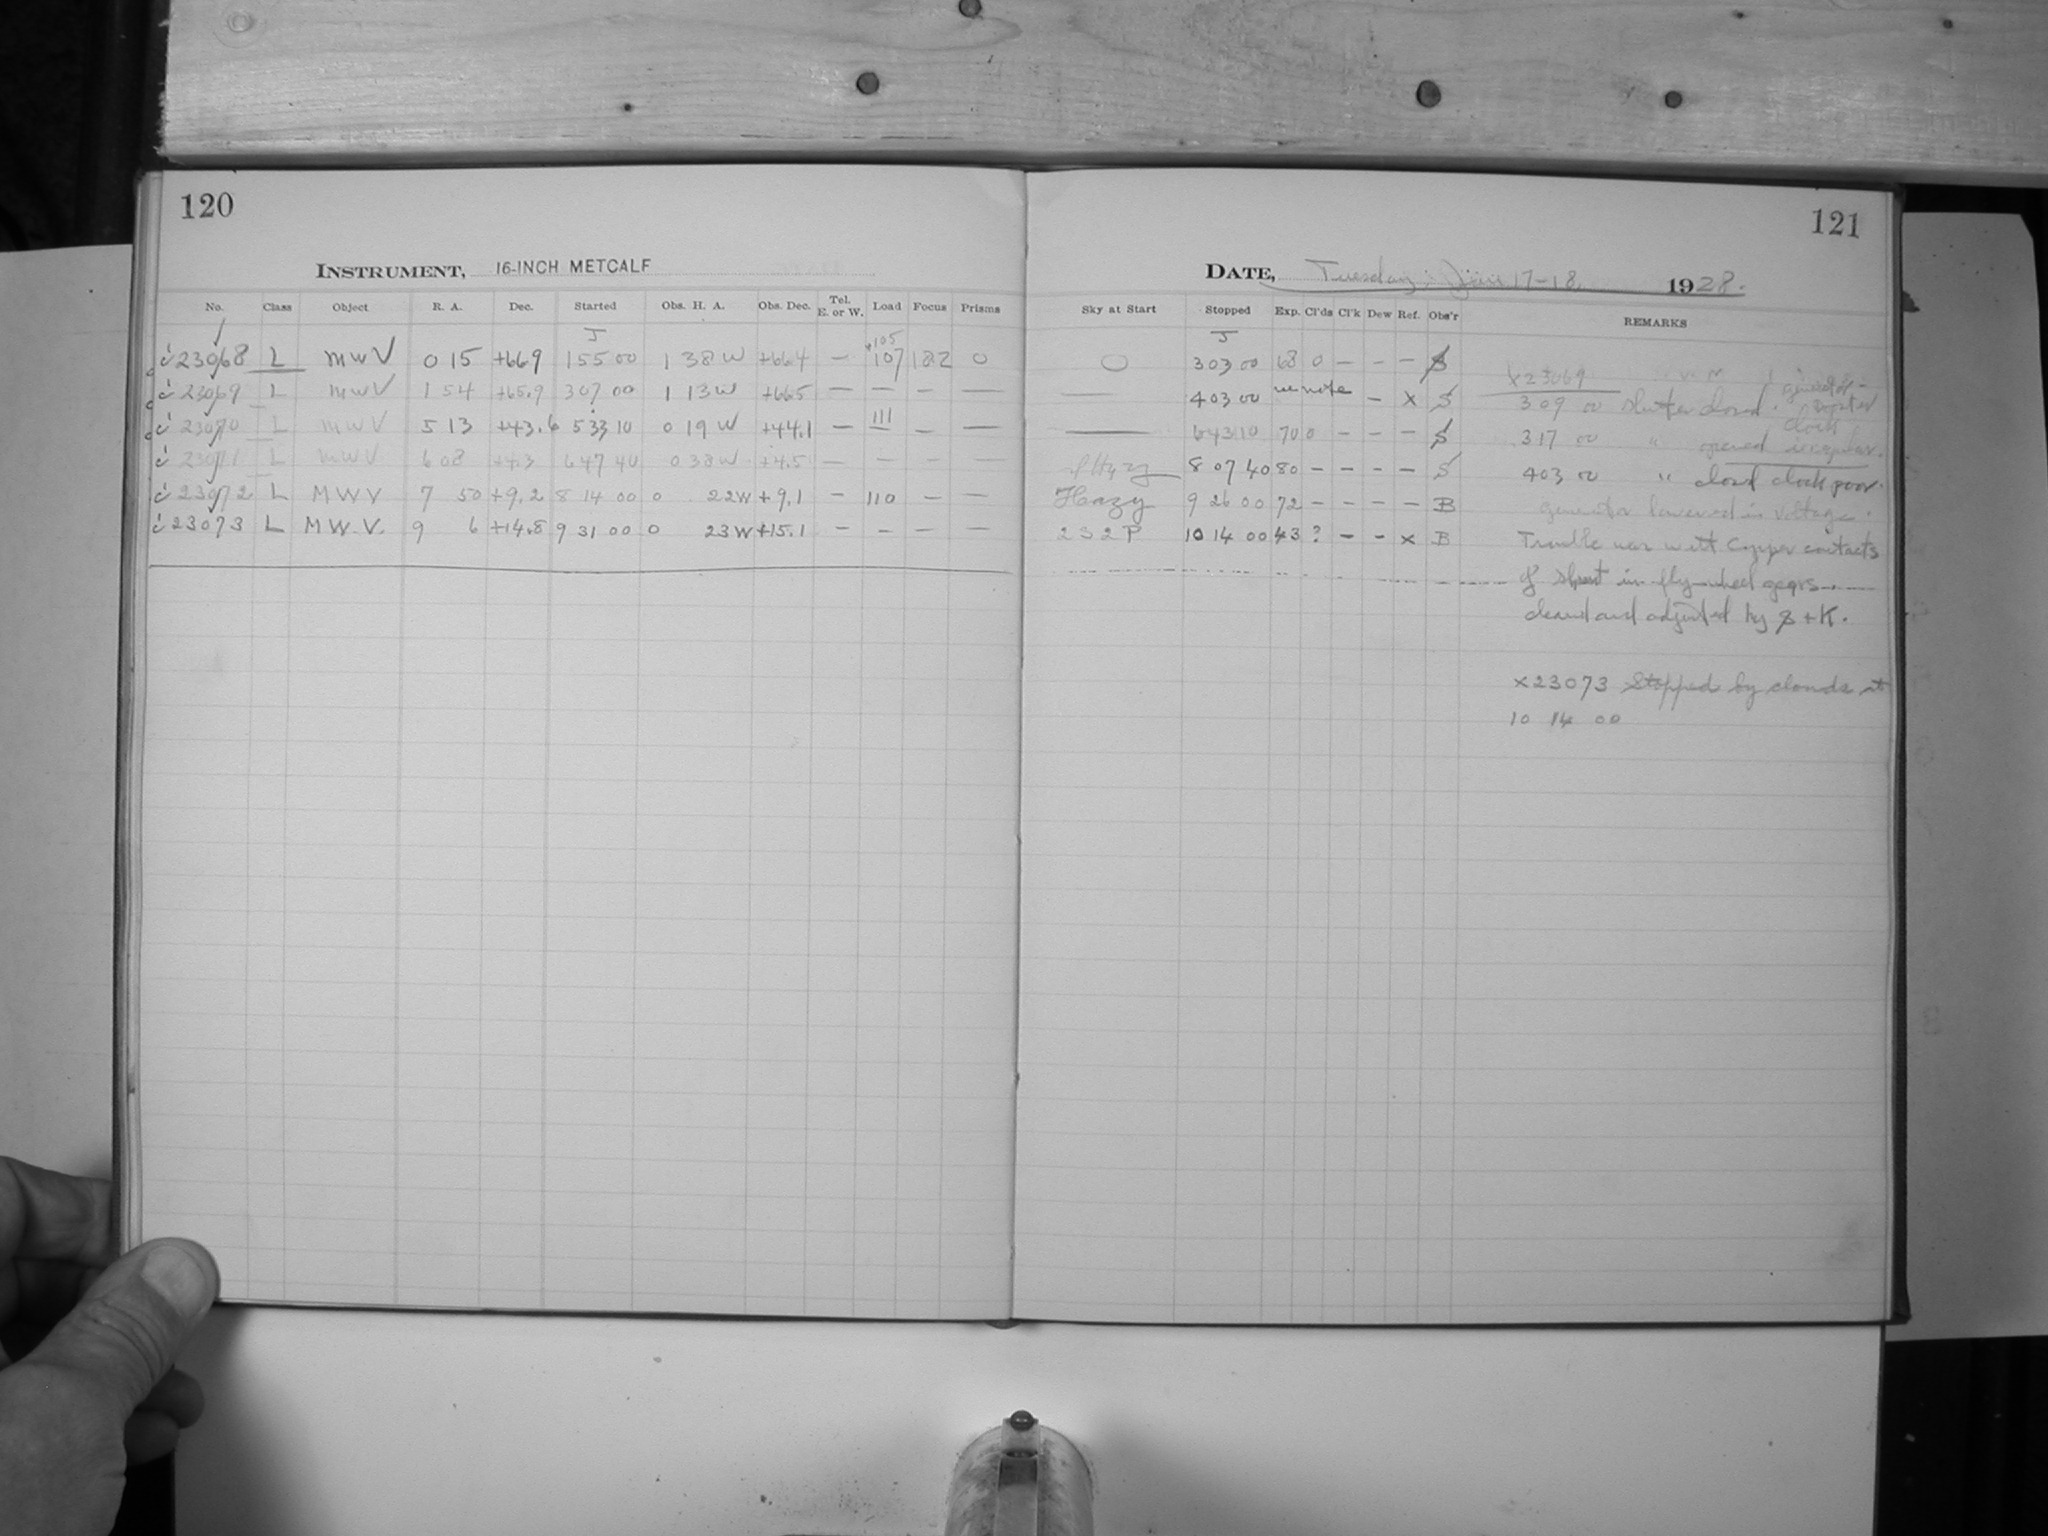 120
INSTRUMENT, 16-INCH METCALF
No. Class Object R. A. Dec. Started Obs. H. A. Obs. Dec. Tel. E. or W. Load Focus Prisms
J
i 23068 L MWV 0 15 +66.9 1 55 00 1 38 W +66.4 — 105 107 18.2 0
i 23069 L MWV 1 54 +65.9 3 07 00 1 13 W +66.5 — — — —
i 23070 L MWV 5 13 +43.6 5 33 10 0 19 W +44.1 — 111 — —
i 23071 L MWV 6 08 +4.3 6 47 40 0 38 W +4.5 — — — —
i 23072 L MWV 7 50 +9.2 8 14 00 0 22 W +9.1 — 110 — —
i 23073 L M.W.V. 9 6 +14.8 9 31 00 0 23 W +15.1 — — — —
121
DATE, Tuesday: 17-18, 1928.
Sky at Start Stopped Exp. Cl'ds Cl'k Dew Ref. Obs'r REMARKS
J
0 3 03 00 68 0 — — — S
— 4 03 00 see note — x S
— 6 43 10 70 0 — — — S
Hazy 8 07 40 80 — — — — S
Hazy 9 26 00 72 — — — — B
2 3 2 P 10 14 00 43 ? — — x B
x23069
3 09 00 shutter closed. generator
clock
3 17 00 " opened irregular.
4 03 00 " closed clock poor.
generator lowered in voltage.
Trouble was with copper contacts
of in fly-wheel gears.
cleaned and adjusted by S + K.
x23073 Stopped by clouds at
10 14 00